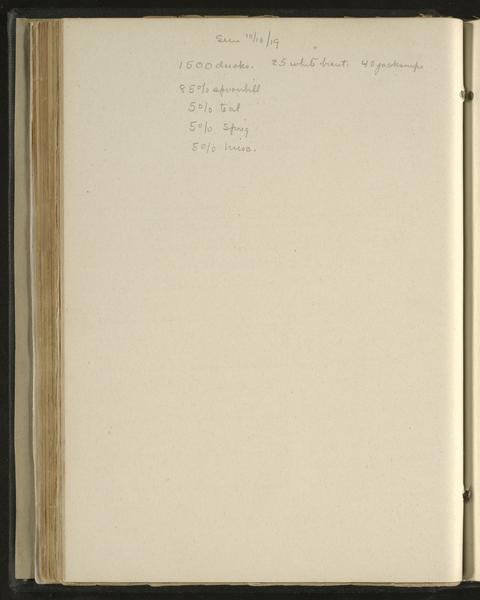 Sun 10/18/19
1500 ducks. 25 white brant. 40 jacksnipe
85% spoonbill
5% teal
5% sprig
5% misc.